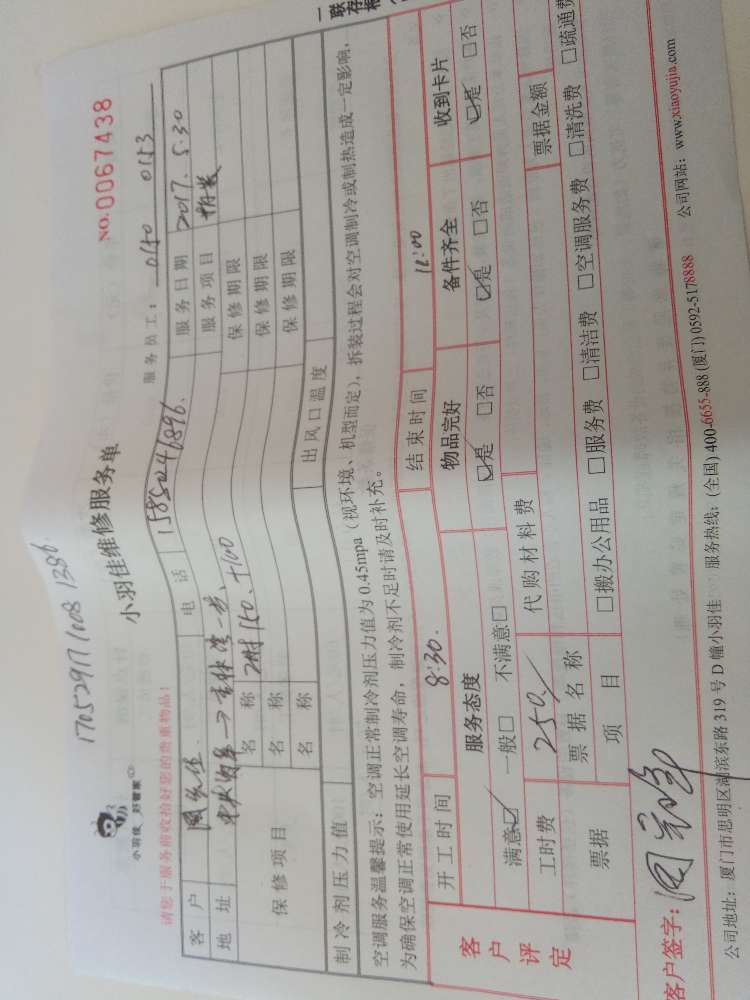 1705291710081386
小羽佳 好管家
小羽佳维修服务单
NO.0067438
请您于服务前收拾好您的贵重物品!
服务员工: 0140 0153
客户 电话 15850246896. 服务日期 2017.5.30
地址 服务项目 拆装
保修项目 名称 保修期限
名称 保修期限
名称 保修期限
制冷剂压力值 出风口温度
空调服务温馨提示:空调正常制冷剂压力值为0.45mpa(视环境、机型而定),拆装过程会对空调制冷或制热造成一定影响,
为确保空调正常使用延长空调寿命,制冷剂不足时请及时补充。
客户评定
开工时间 8:30. 结束时间 12:00
服务态度 物品完好 备件齐全 收到卡片
满意☑ 一般□ 不满意□ ☑是 □否 ☑是 □否 ☑是 □否
工时费 250./ 代购材料费
票据 票据名称 票据金额
项目 □搬办公用品 □服务费 □清洁费 □空调服务费 □清洗费 □疏通费
客户签字:
公司地址:厦门市思明区湖滨东路319号D幢小羽佳 服务热线:(全国)400-6655-888(厦门)0592-5178888 公司网站:www.xiaoyujia.com
一联存根